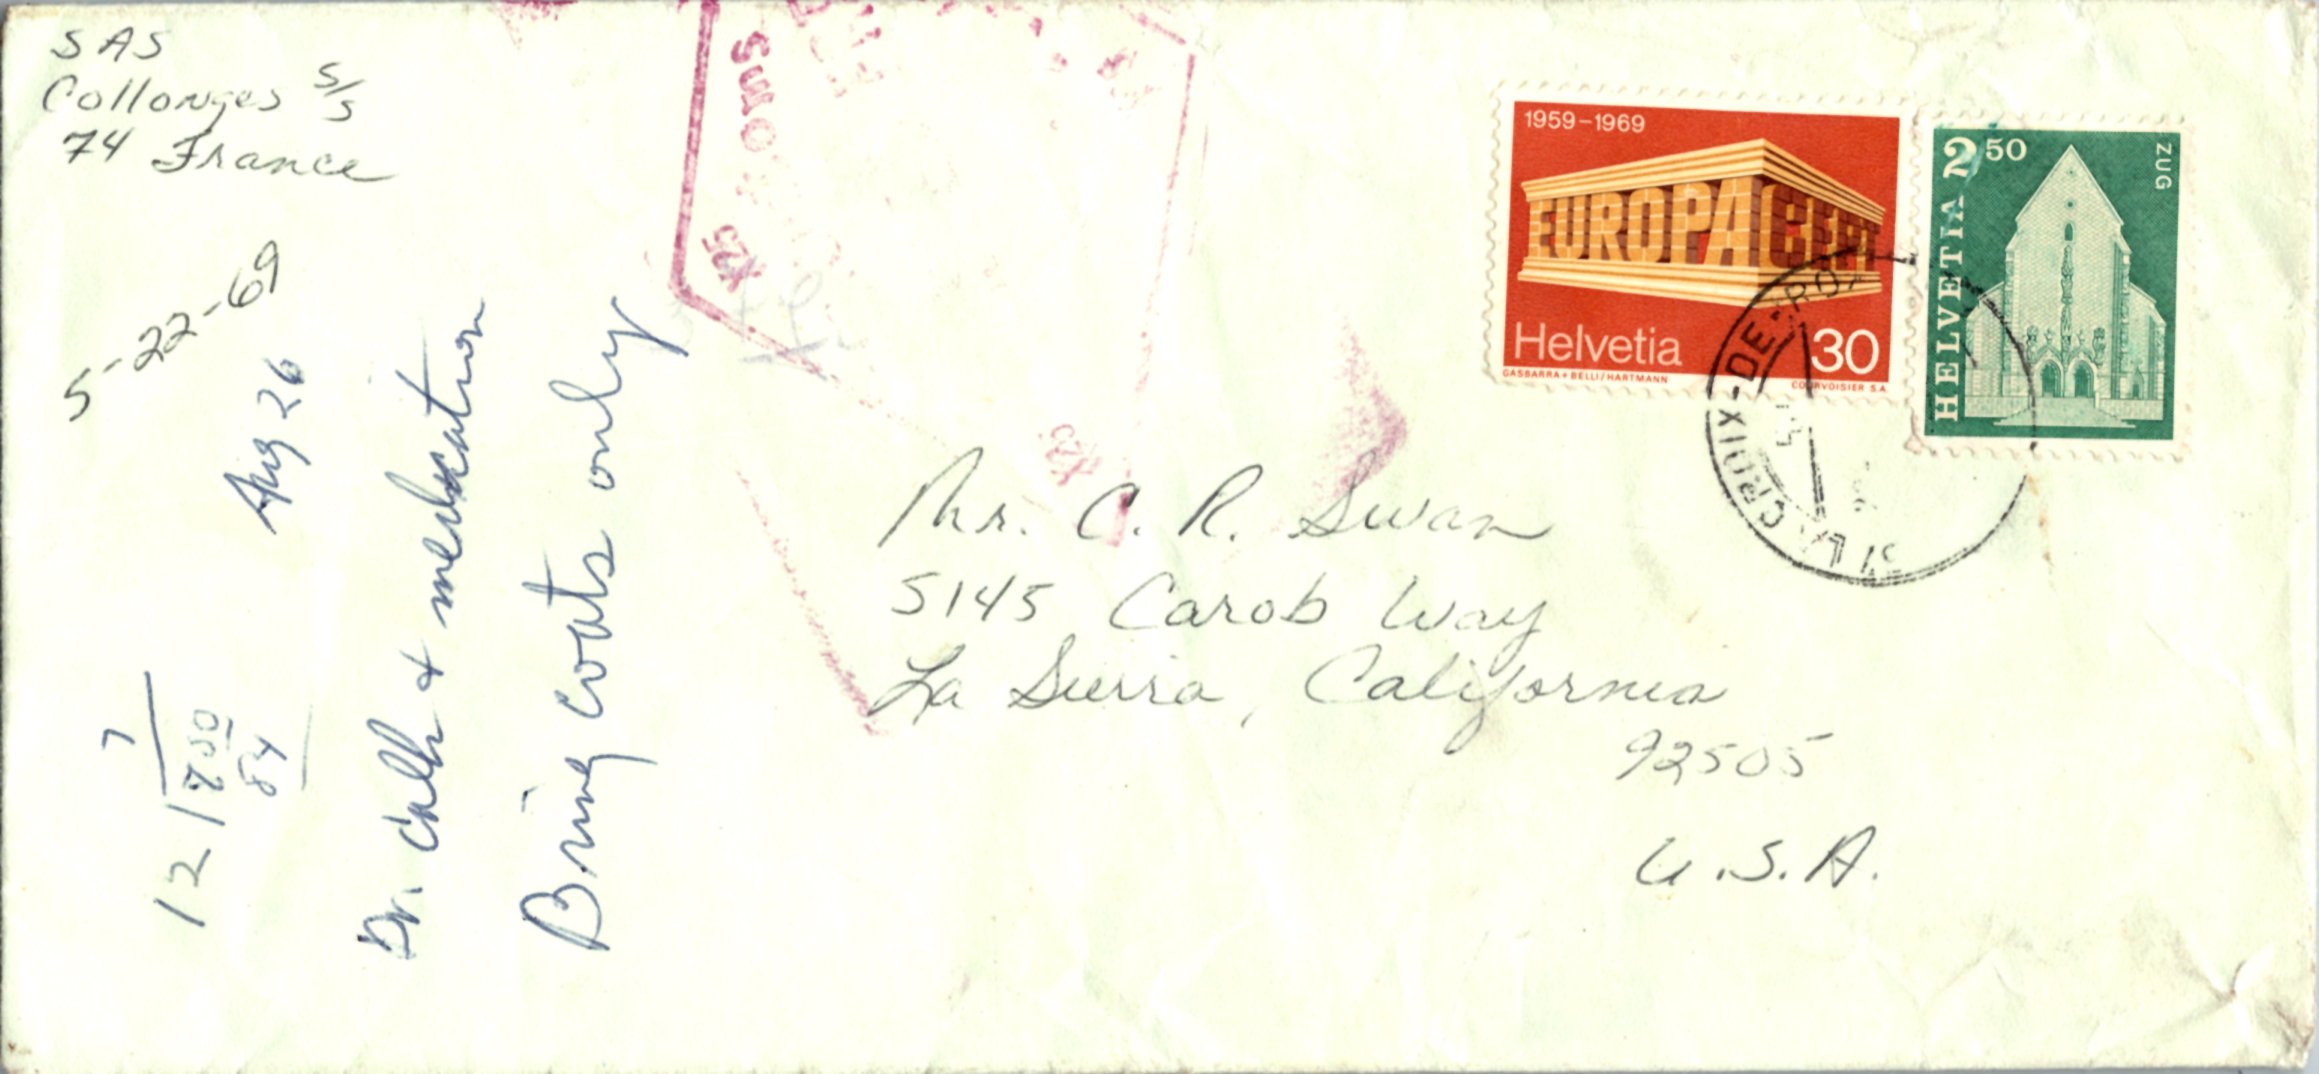 SAS
Collonges s/s
74 France
5-22-69
Aug 26
7
12
84
Dr. &
Bring coats only
1959-1969
EUROPA CEPT
Helvetia 30
GASBARRA + BELLI/HARTMANN COURVOISIER S.A.
HELVETIA 2 50
ZUG
LA CROIX-DE-ROZ
Mr. C. R. Swan
5145 Carob Way
La Sierra, California
92505
U.S.A.